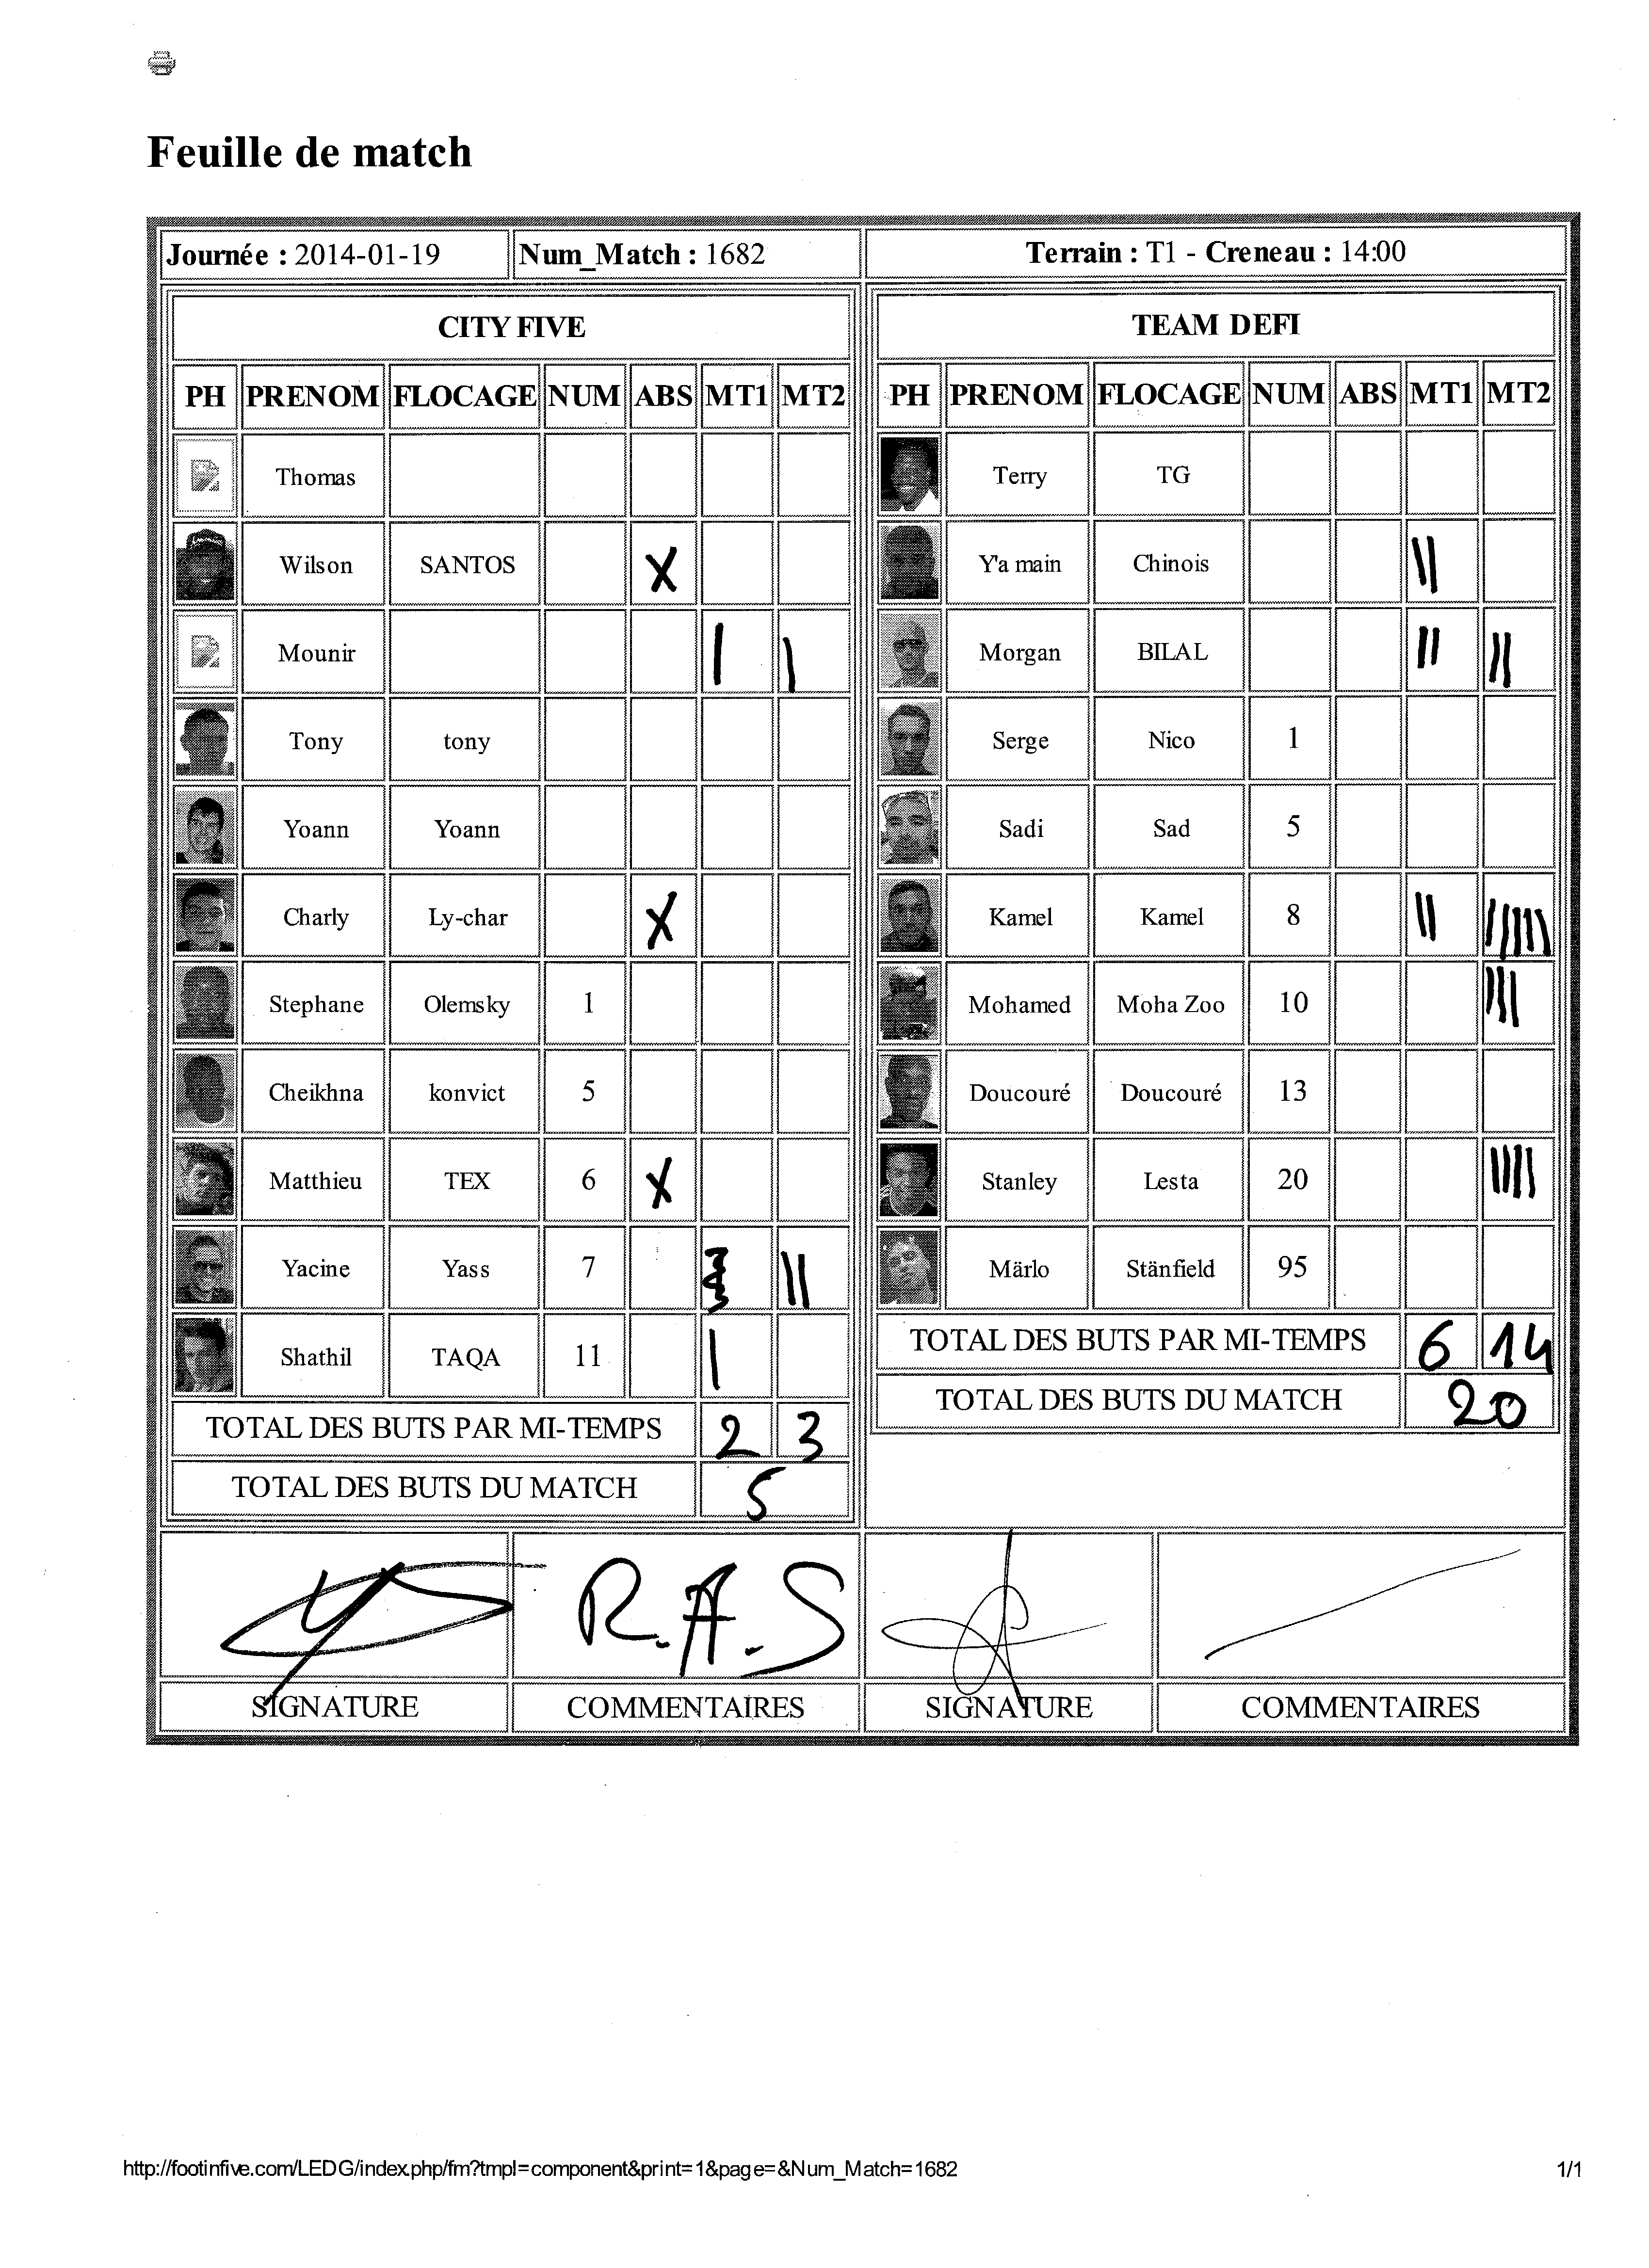 Feuille de match
Journée : 2014-01-19 Num_Match : 1682 Terrain : T1 - Creneau : 14:00
CITY FIVE
PH PRENOM FLOCAGE NUM ABS MT1 MT2
Thomas
Wilson SANTOS X
Mounir | |
Tony tony
Yoann Yoann
Charly Ly-char X
Stephane Olemsky 1
Cheikhna konvict 5
Matthieu TEX 6 X
Yacine Yass 7 ||
Shathil TAQA 11 |
TOTAL DES BUTS PAR MI-TEMPS 2 3
TOTAL DES BUTS DU MATCH 5
TEAM DEFI
PH PRENOM FLOCAGE NUM ABS MT1 MT2
Terry TG
Y'a main Chinois ||
Morgan BILAL || ||
Serge Nico 1
Sadi Sad 5
Kamel Kamel 8 || |||||
Mohamed Moha Zoo 10 |||
Doucouré Doucouré 13
Stanley Lesta 20 ||||
Märlo Stänfield 95
TOTAL DES BUTS PAR MI-TEMPS 6 14
TOTAL DES BUTS DU MATCH 20
R.A.S
SIGNATURE COMMENTAIRES SIGNATURE COMMENTAIRES
http://footinfive.com/LEDG/index.php/fm?tmpl=component&print=1&page=&Num_Match=1682 1/1